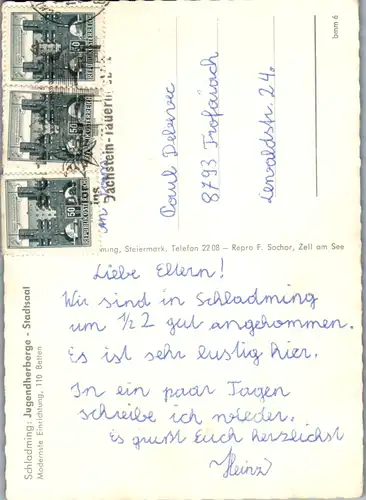 50
REPUBLIK ÖSTERREICH
50
REPUBLIK ÖSTERREICH
50
REPUBLIK ÖSTERREICH
ins
Dachstein-Tauerngebiet
An
Paul
8793 Trofaiach
24.
bmm 6
Steiermark, Telefon 22 08 – Repro F. Sochor, Zell am See
Liebe Eltern!
Wir sind in Schladming
um ½ 2 gut angekommen.
Es ist sehr lustig hier.
In ein paar Tagen
schreibe ich wieder.
Es grüßt Euch herzlichst
Heinz
Schladming: Jugendherberge - Stadtsaal
Modernste Einrichtung, 110 Betten